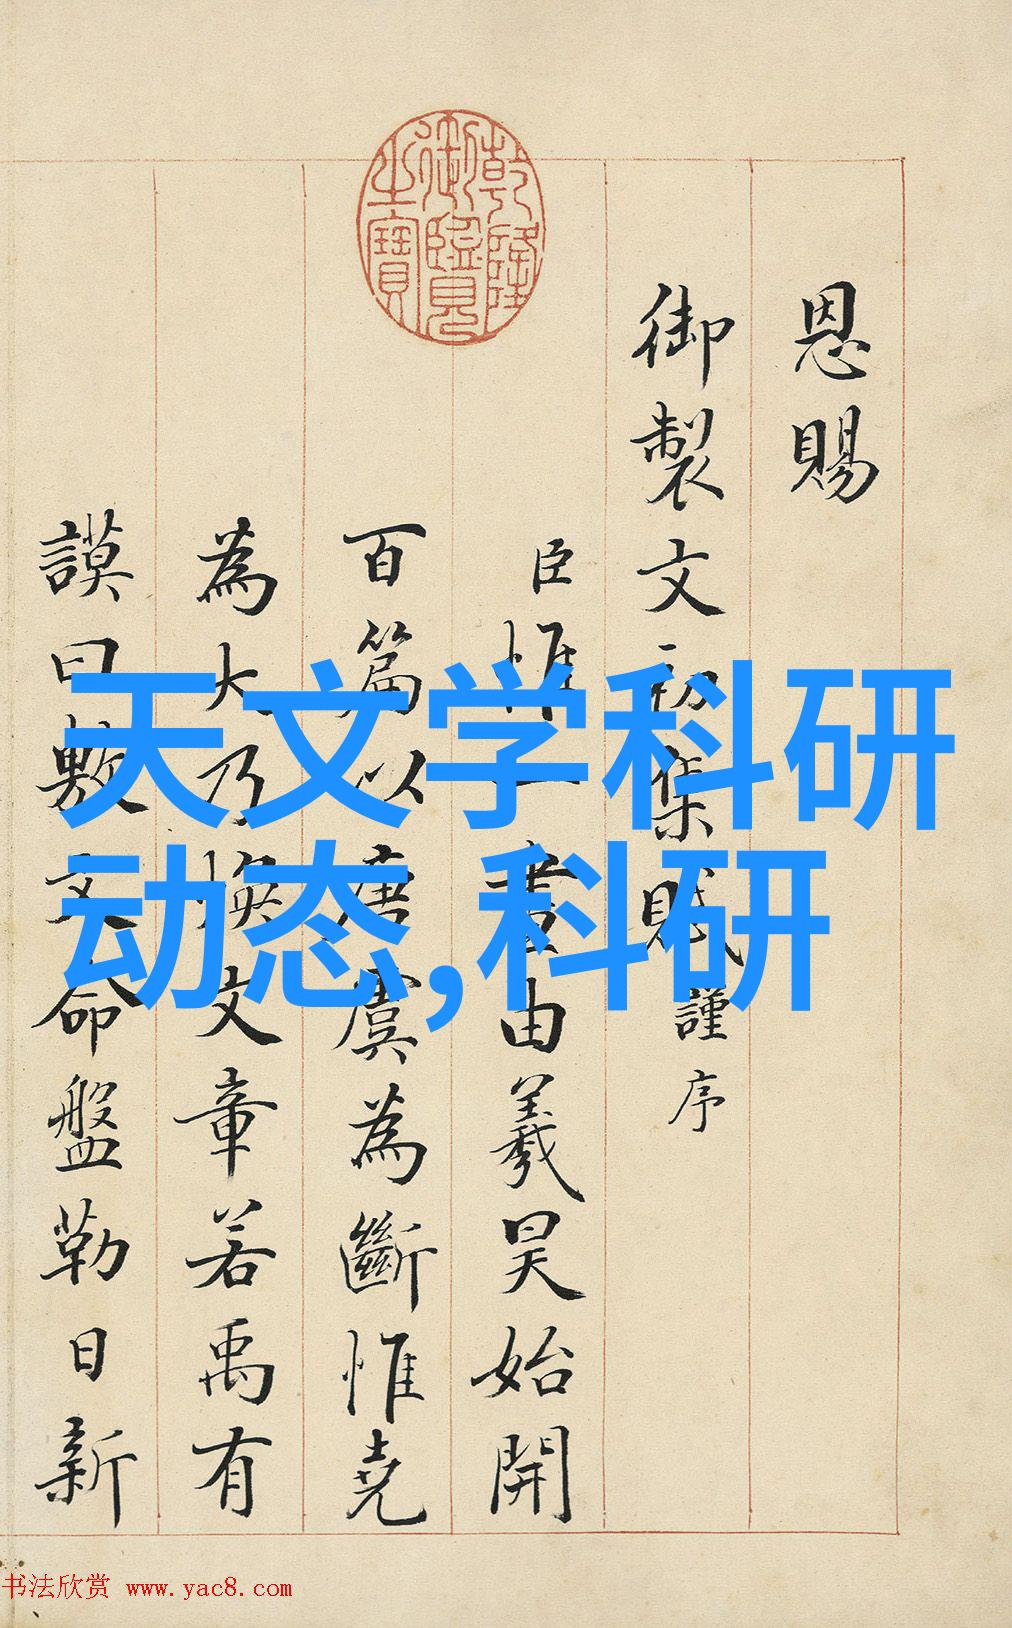 恩賜
御製文初集賦謹序
臣惟一畫由羲昊始開
百篇以唐虞為斷惟堯
為大乃煥文章若禹有
謨曰敷文命盤勒日新
乾隆
御覽
之寶
天文学科研
动态,科研
书法欣赏 www.yac8.com